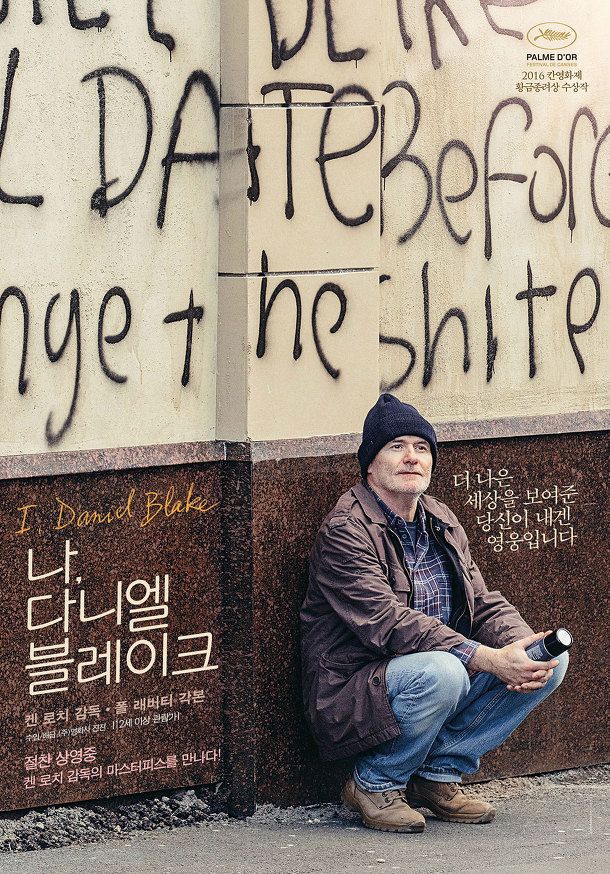 PALME D'OR
FESTIVAL DE CANNES
2016 칸영화제
황금종려상 수상작
L DATE Before
nge the shite
더 나은
세상을 보여준
당신이 내겐
영웅입니다
I, Daniel Blake
나,
다니엘
블레이크
켄 로치 감독 • 폴 래버티 각본
수입/배급 (주)영화사 진진 | 12세 이상 관람가 |
절찬 상영중
켄 로치 감독의 마스터피스를 만나다!